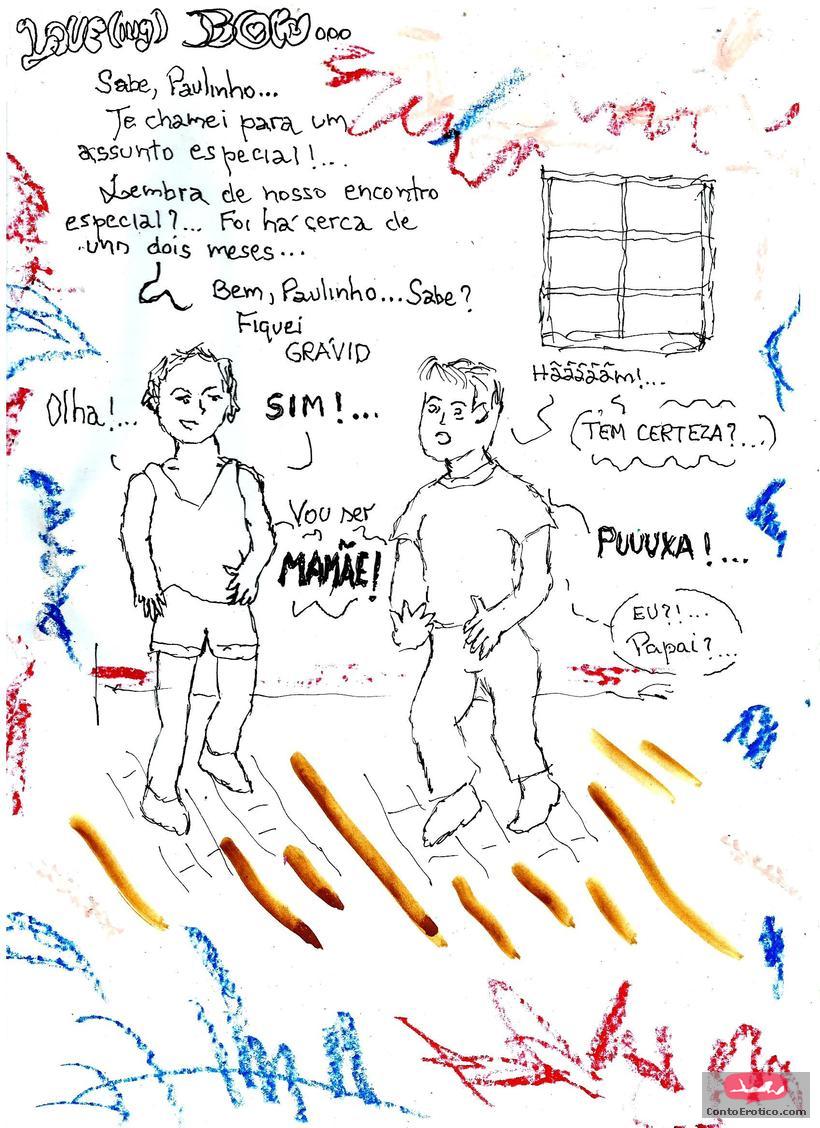 LOVE(ing) BOW...
Sabe, Paulinho...
Te chamei para um
assunto especial!...
Lembra de nosso encontro
especial?... Foi há cerca de
uns dois meses...
Bem, Paulinho...Sabe?
Fiquei
GRÁVID
Hããããããm!...
Olha!...
SIM!...
(TEM CERTEZA?...)
Vou ser
MAMÃE!
PUUUXA!...
EU?!...
Papai?...
ContoErotico.com